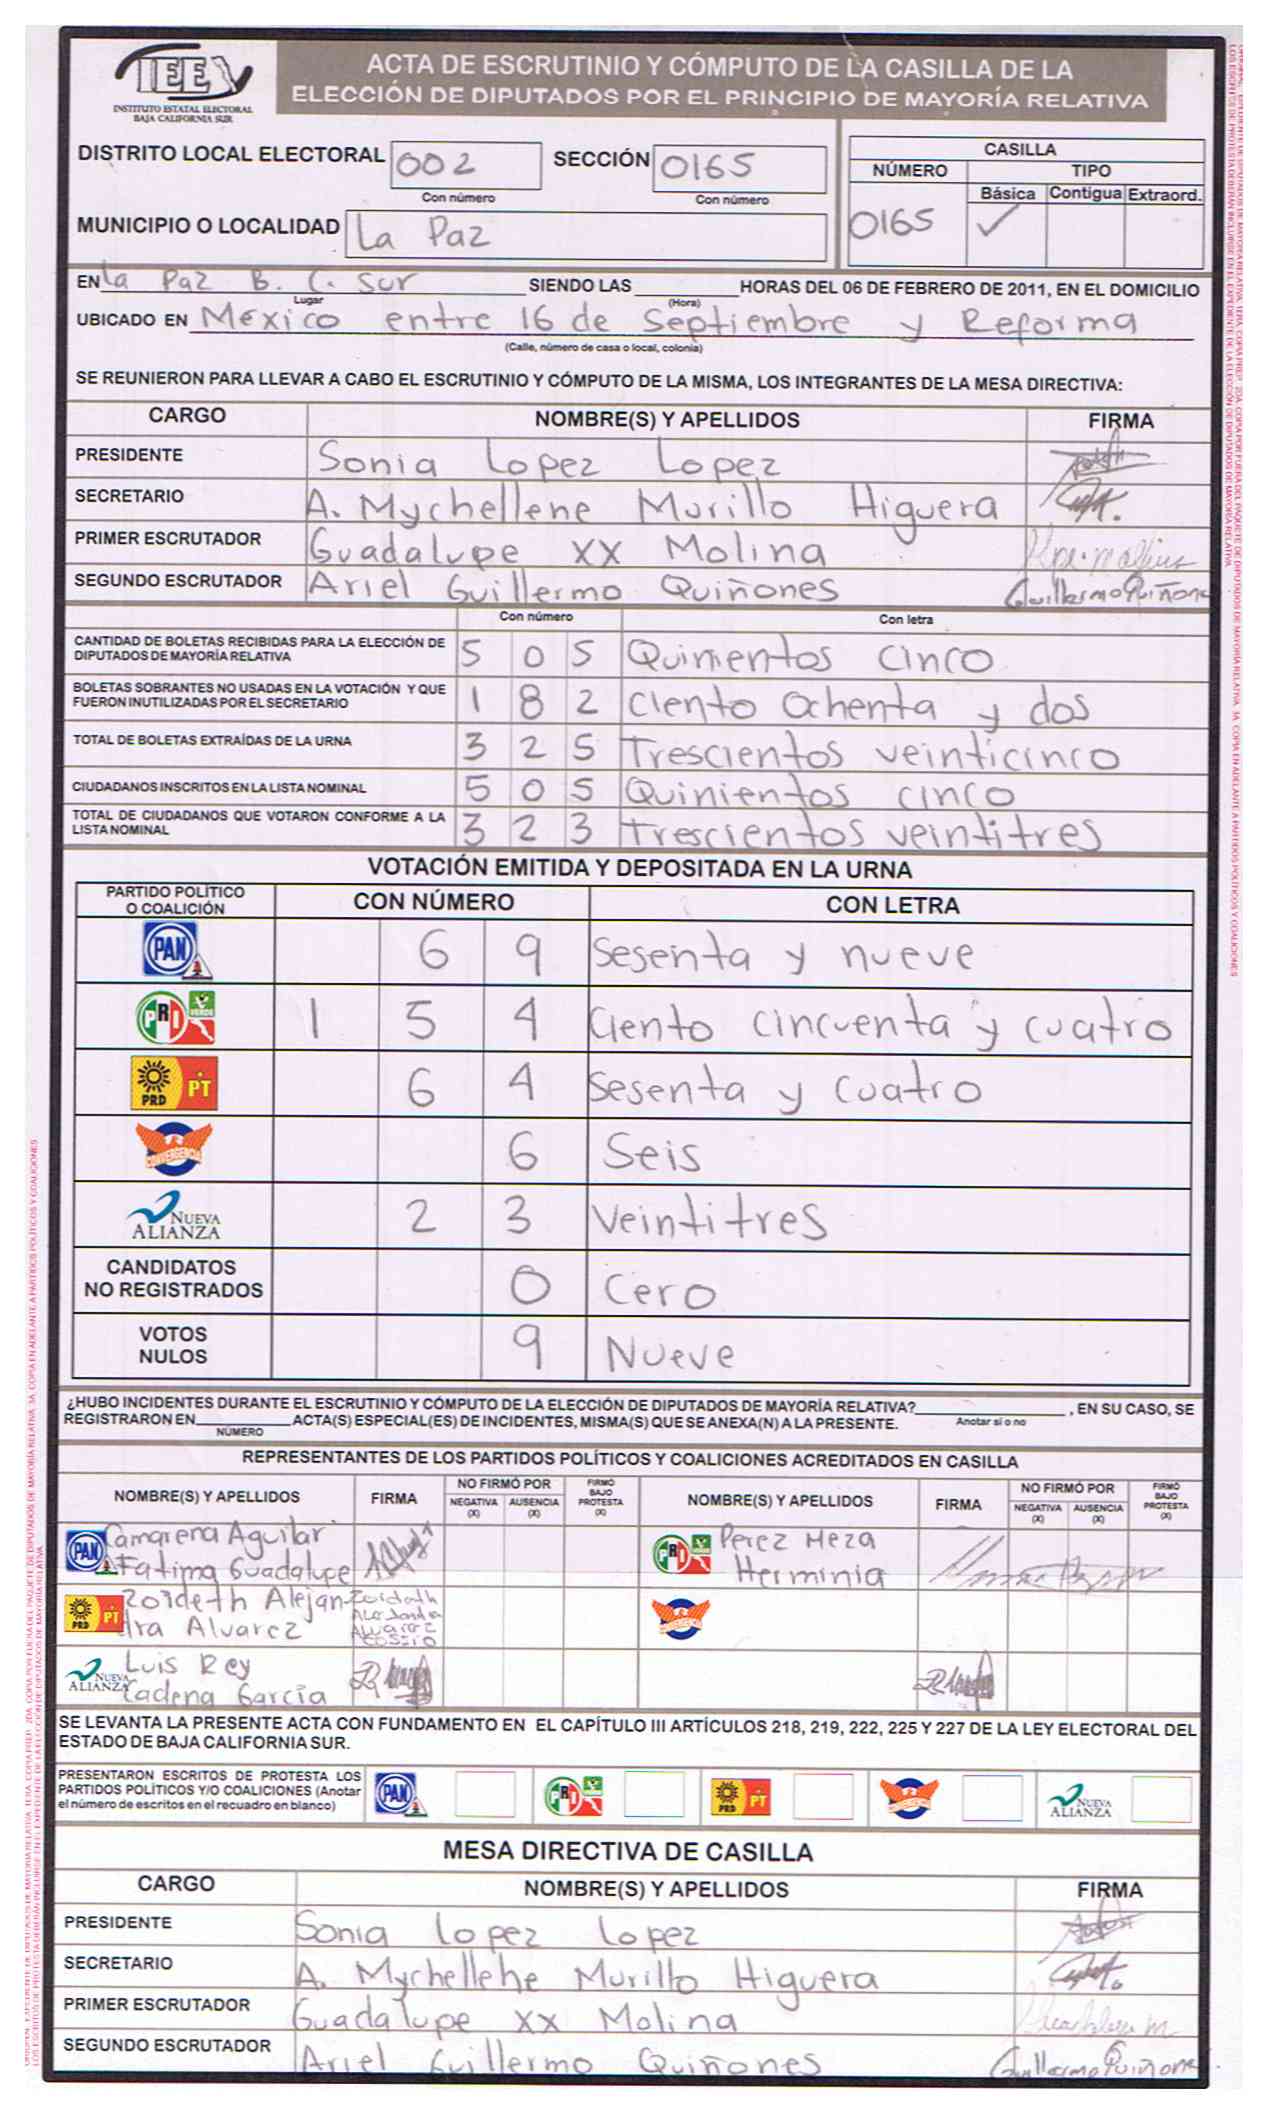 IEE
INSTITUTO ESTATAL ELECTORAL
BAJA CALIFORNIA SUR
ACTA DE ESCRUTINIO Y CÓMPUTO DE LA CASILLA DE LA
ELECCIÓN DE DIPUTADOS POR EL PRINCIPIO DE MAYORÍA RELATIVA
DISTRITO LOCAL ELECTORAL 002 SECCIÓN 0165
Con número Con número
CASILLA
NÚMERO TIPO
Básica Contigua Extraord.
0165 ✓
MUNICIPIO O LOCALIDAD La Paz
EN La Paz B. C. Sur SIENDO LAS ________ HORAS DEL 06 DE FEBRERO DE 2011, EN EL DOMICILIO
Lugar (Hora)
UBICADO EN México entre 16 de Septiembre y Reforma
(Calle, número de casa o local, colonia)
SE REUNIERON PARA LLEVAR A CABO EL ESCRUTINIO Y CÓMPUTO DE LA MISMA, LOS INTEGRANTES DE LA MESA DIRECTIVA:
CARGO NOMBRE(S) Y APELLIDOS FIRMA
PRESIDENTE Sonia Lopez Lopez
SECRETARIO A. Mychellene Murillo Higuera
PRIMER ESCRUTADOR Guadalupe xx Molina
SEGUNDO ESCRUTADOR Ariel Guillermo Quiñones Guillermo Quiñones
Con número Con letra
CANTIDAD DE BOLETAS RECIBIDAS PARA LA ELECCIÓN DE
DIPUTADOS DE MAYORÍA RELATIVA 5 0 5 Quinientos cinco
BOLETAS SOBRANTES NO USADAS EN LA VOTACIÓN Y QUE
FUERON INUTILIZADAS POR EL SECRETARIO 1 8 2 Ciento Ochenta y dos
TOTAL DE BOLETAS EXTRAÍDAS DE LA URNA 3 2 5 Trescientos veinticinco
CIUDADANOS INSCRITOS EN LA LISTA NOMINAL 5 0 5 Quinientos cinco
TOTAL DE CIUDADANOS QUE VOTARON CONFORME A LA
LISTA NOMINAL 3 2 3 Trescientos veintitres
VOTACIÓN EMITIDA Y DEPOSITADA EN LA URNA
PARTIDO POLÍTICO
O COALICIÓN CON NÚMERO CON LETRA
PAN 6 9 Sesenta y nueve
PRI VERDE 1 5 4 Ciento cincuenta y cuatro
PRD PT 6 4 Sesenta y cuatro
CONVERGENCIA 6 Seis
NUEVA ALIANZA 2 3 Veintitres
CANDIDATOS
NO REGISTRADOS 0 Cero
VOTOS
NULOS 9 Nueve
¿HUBO INCIDENTES DURANTE EL ESCRUTINIO Y CÓMPUTO DE LA ELECCIÓN DE DIPUTADOS DE MAYORÍA RELATIVA? ________ , EN SU CASO, SE
Anotar sí o no
REGISTRARON EN ________ ACTA(S) ESPECIAL(ES) DE INCIDENTES, MISMA(S) QUE SE ANEXA(N) A LA PRESENTE.
NÚMERO
REPRESENTANTES DE LOS PARTIDOS POLÍTICOS Y COALICIONES ACREDITADOS EN CASILLA
NOMBRE(S) Y APELLIDOS FIRMA NO FIRMÓ POR NEGATIVA (X) AUSENCIA (X) FIRMÓ BAJO PROTESTA (X) NOMBRE(S) Y APELLIDOS FIRMA NO FIRMÓ POR NEGATIVA (X) AUSENCIA (X) FIRMÓ BAJO PROTESTA (X)
PAN Camarena Aguilar
Fatima Guadalupe
PRI Perez Meza
Herminia
PRD PT Zoideth Alejan-
dra Alvarez
Zoideth
Alejandra
Alvarez
Cossio
CONVERGENCIA
NUEVA ALIANZA Luis Rey
Cadena García
SE LEVANTA LA PRESENTE ACTA CON FUNDAMENTO EN EL CAPÍTULO III ARTÍCULOS 218, 219, 222, 225 Y 227 DE LA LEY ELECTORAL DEL
ESTADO DE BAJA CALIFORNIA SUR.
PRESENTARON ESCRITOS DE PROTESTA LOS
PARTIDOS POLÍTICOS Y/O COALICIONES (Anotar
el número de escritos en el recuadro en blanco)
PAN PRI PRD PT CONVERGENCIA NUEVA ALIANZA
MESA DIRECTIVA DE CASILLA
CARGO NOMBRE(S) Y APELLIDOS FIRMA
PRESIDENTE Sonia Lopez Lopez
SECRETARIO A. Mychellene Murillo Higuera
PRIMER ESCRUTADOR Guadalupe xx Molina
SEGUNDO ESCRUTADOR Ariel Guillermo Quiñones Guillermo Quiñones